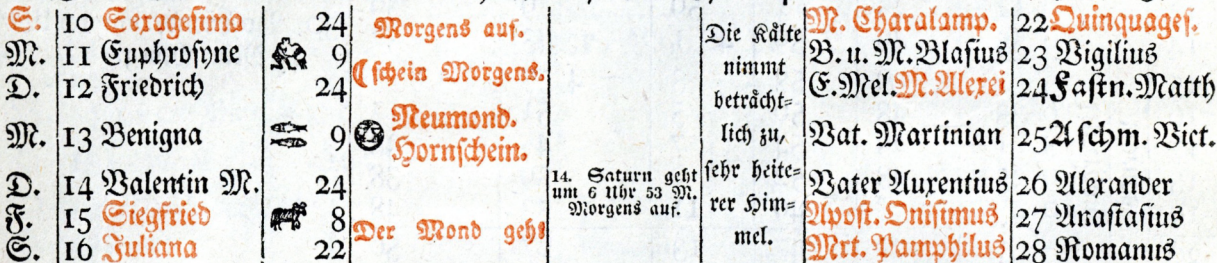 S. 10 Sexagesima 24 Morgens auf. M. Charalamp. 22 Quinquages.
M. 11 Euphrosyne 9 schein Morgens. Die Kälte nimmt B. u. M. Blasius 23 Vigilius
D. 12 Friedrich 24 beträcht= E. Mel. M. Alexei 24 Fastn. Matth
M. 13 Benigna 9 Neumond. Hornschein. lich zu, Vat. Martinian 25 Aschm. Vict.
D. 14 Valentin M. 24 14. Saturn geht um 6 Uhr 53 M. Morgens auf. sehr heite= Vater Auxentius 26 Alexander
F. 15 Siegfried 8 Der Mond geht rer Him= Apost. Onisimus 27 Anastasius
S. 16 Juliana 22 mel. Mrt. Pamphilus 28 Romanus